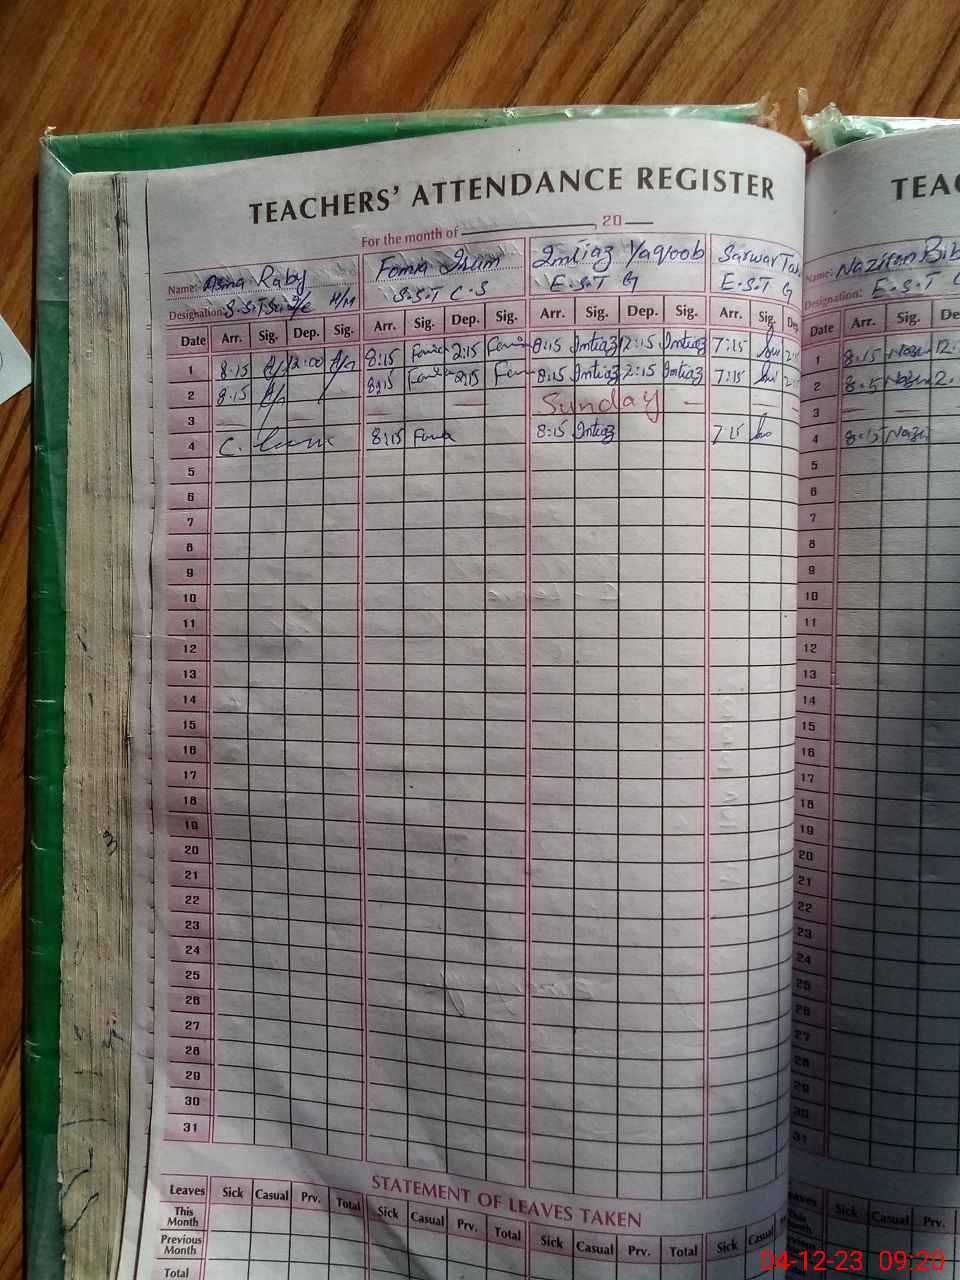 TEACHERS' ATTENDANCE REGISTER
TEAC
For the month of 20
Name: Asma Raby Fomia Irum Imtiaz Yaqoob Sarwar Name: Nazifan Bib
Designation: H/M S.S.T C.S E.S.T G E.S.T G Designation: E.S.T
Date Arr. Sig. Dep. Sig. Arr. Sig. Dep. Sig. Arr. Sig. Dep. Sig. Arr. Sig. Dep Date Arr. Sig. De
1 8:15 12:00 8:15 2:15 8:15 Imtiaz 12:15 Imtiaz 7:15 1 8:15 Nazi 12
2 8:15 8:15 2:15 8:15 Imtiaz 2:15 Imtiaz 7:15 2 8:15 Nazi
3 Sunday 3
4 C. leave 8:15 8:15 Imtiaz 7:15 4 8:15 Nazi
5 5
6 6
7 7
8 8
9 9
10 10
11 11
12 12
13 13
14 14
15 15
16 16
17 17
18 18
19 19
20 20
21 21
22 22
23 23
24 24
25 25
26 26
27 27
28 28
29 29
30 30
31 31
STATEMENT OF LEAVES TAKEN
Leaves Sick Casual Prv. Total Sick Casual Prv. Total Sick Casual Prv. Total Sick Casual Leaves Sick Casual Prv.
This Month This Month
Previous Month Previous Month
Total
04-12-23 09:20